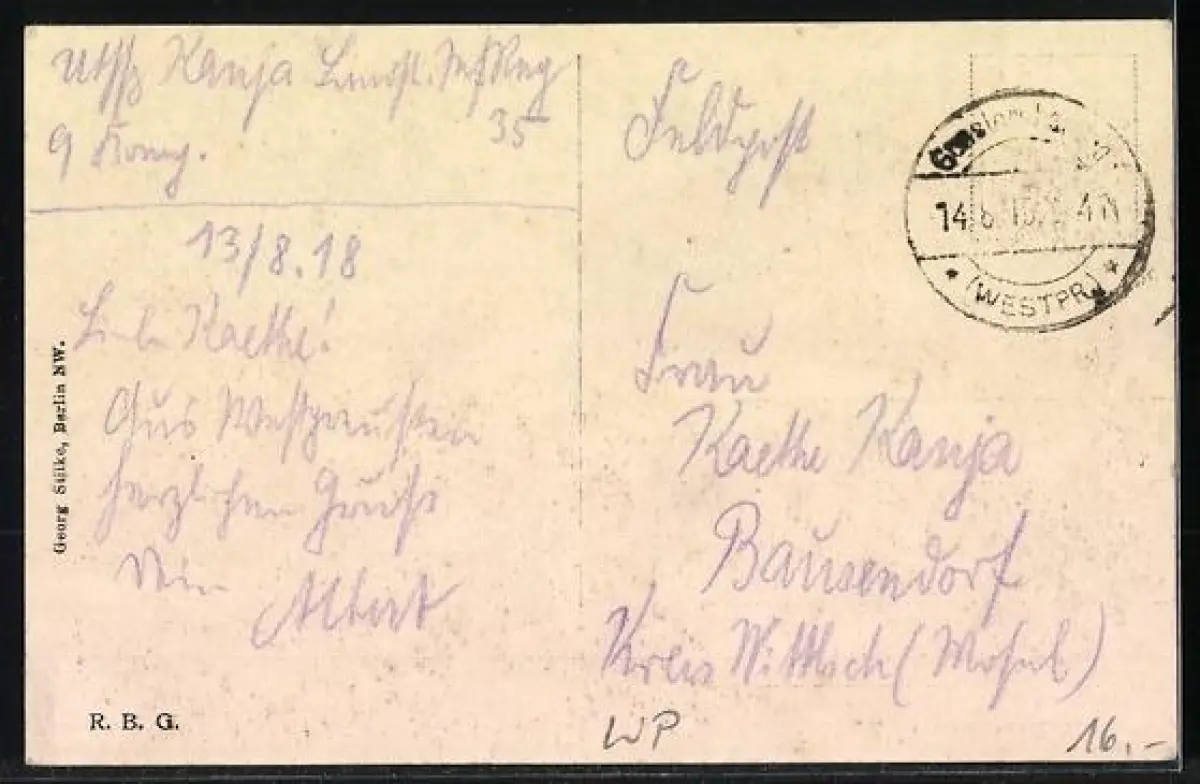 Utffz Kanja Landst. Inf Reg
35
9 Komp.
13/8.18
Liebe Kaethe!
Aus Westpreußen
herzlichen Gruß
Dein
Albert
Georg Stilke, Berlin NW.
R. B. G.
Feldpost
14.8.18. 4 N
* (WESTPR.) *
Frau
Kaethe Kanja
Bausendorf
Kreis Wittlich (Mosel)
WP
16.-